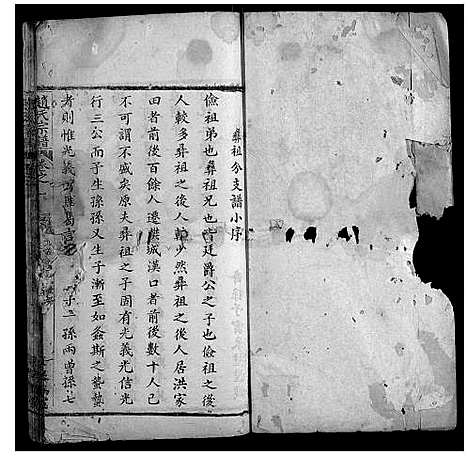 彝祖分支譜小序
儉祖弟也彝祖兄也皆廷爵公之子也儉祖之後
人較多彝祖之後人較少然彝祖之後人居洪家
田者前後百餘人遷樊城漢口者前後數十人已
不可謂不盛矣原夫彝祖之子固有光義光信光
行三公而子生孫孫又生子漸至如螽斯之蟄蟄
者則惟光義公 子二孫兩曾孫七
趙氏宗譜